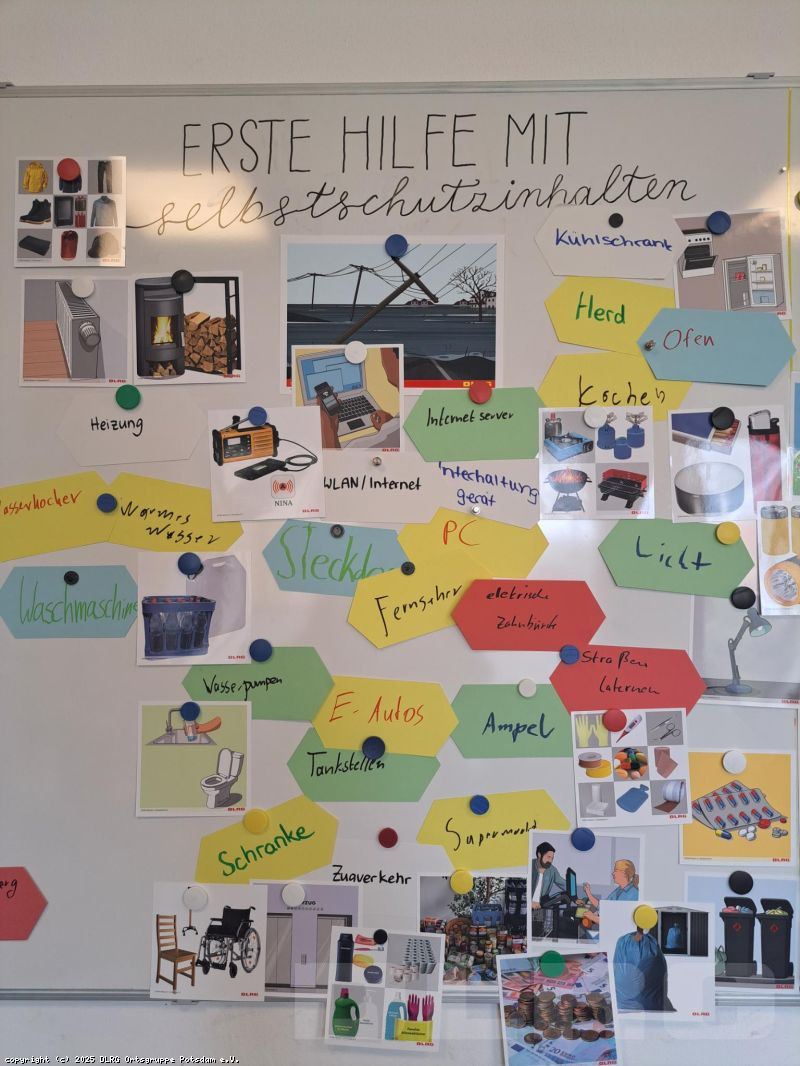 ERSTE HILFE MIT
selbstschutzinhalten
Kühlschrank
Herd
Ofen
Kochen
Heizung
Internet server
NINA
WLAN/Internet
Unterhaltung
gerät
Wasserkocher
Warmes
Wasser
PC
Licht
Steckdo
Waschmaschine
Fernseher
elektrische
Zahnbürste
Straßen
laternen
Wasserpumpen
E-Autos
Ampel
Tankstellen
Schranke
Supermarkt
Zugverkehr
DLRG
copyright (c) 2025 DLRG Ortsgruppe Potsdam e.V.